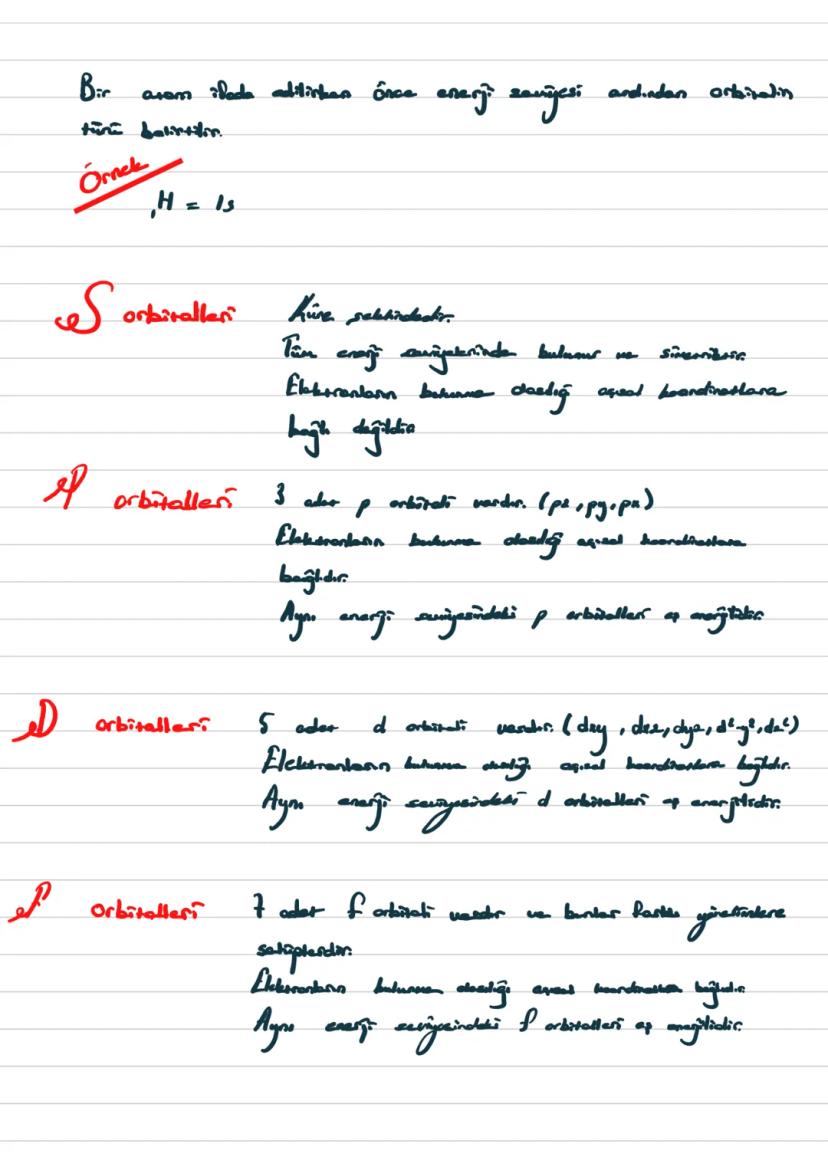 Bir atom ifade edilirken önce enerji seviyesi ardından orbitalin
türü belirtilir.
Örnek
₁H = 1s
S orbitalleri Küre şeklindedir.
Tüm enerji seviyelerinde bulunur ve simetriktir.
Elektronların bulunma olasılığı açısal koordinatlara
bağlı değildir
P orbitalleri 3 adet p orbitali vardır. (pz, py, px)
Elektronların bulunma olasılığı açısal koordinatlara
bağlıdır.
Aynı enerji seviyesindeki p orbitalleri eş enerjilidir.
D orbitalleri 5 adet d orbitali vardır. (dxy, dxz, dyz, d²-y², dz²)
Elektronların bulunma olasılığı açısal koordinatlara bağlıdır.
Aynı enerji seviyesindeki d orbitalleri eş enerjilidir.
f orbitalleri 7 adet f orbitali vardır ve bunlar farklı yönelimlere
sahiplerdir.
Elektronların bulunma olasılığı açısal koordinatlara bağlıdır.
Aynı enerji seviyesindeki f orbitalleri eş enerjilidir.